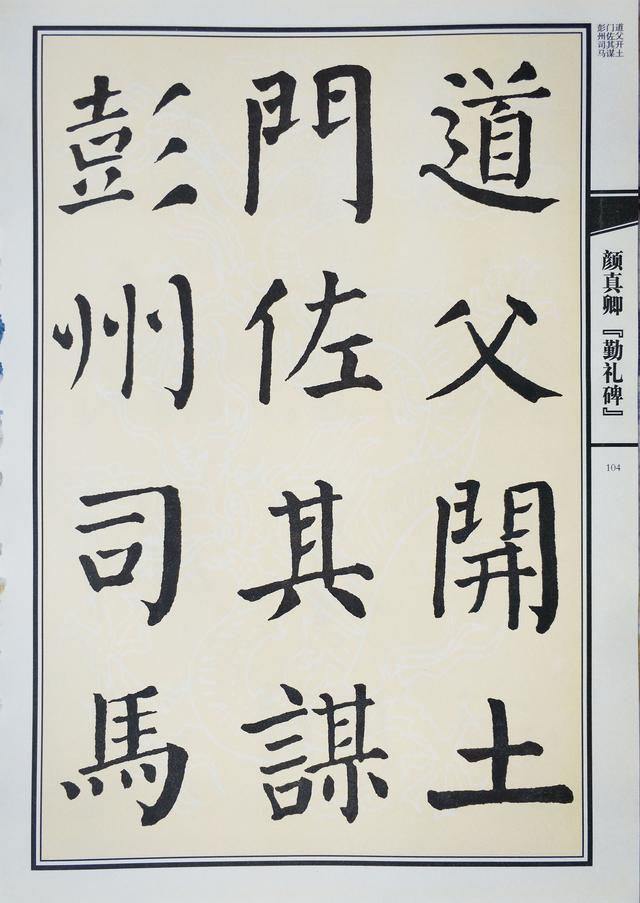 道父開土
門佐其謀
彭州司馬
道父开土
门佐其谋
彭州司马
颜真卿『勤礼碑』
104